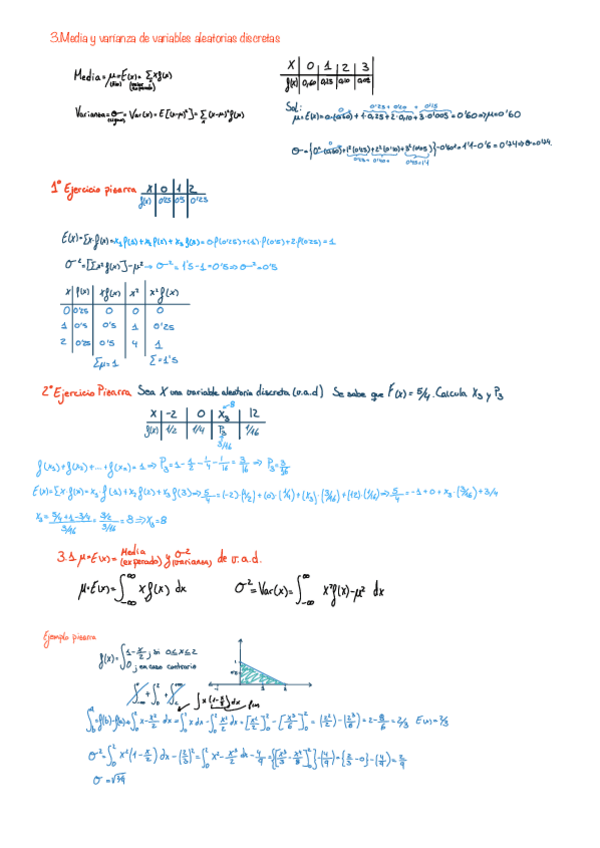 3. Media y varianza de variables aleatorias discretas
Media = μ = E(x) = Σ x f(x)
Varianza = σ² = Var(x) = E[(x-μ)²] = Σ (x-μ)² f(x)
X 0 1 2 3
f(x) 0,60 0,25 0,10
Sol:
μ = E(x) = 0·(0,60) + 1·0,25 + 2·0,10 + 3·0'05 = 0'60 ⇒ μ = 0'60
1º Ejercicio pizarra
X 0 1 2
f(x) 0'25 0'5 0'25
E(x) = Σx·f(x) = x₁ f(1) + x₂ f(2) + x₃ f(3) = 0·f(0'25) + (1)·f(0'5) + 2·f(0'25) = 1
σ² = [Σx² f(x)] - μ² → σ² = 1'5 - 1 = 0'5 ⇒ σ² = 0'5
x f(x) x f(x) x² x² f(x)
0 0'25 0 0 0
1 0'5 0'5 1 0'25
2 0'25 0'5 4 1
Σμ = 1 Σ = 1'5
2º Ejercicio Pizarra Sea X una variable aleatoria discreta (v.a.d) Se sabe que F(x) = 5/4. Calcula X₃ y P₃
=8
X -2 0 X₃ 12
f(x) 1/2 1/4 P₃ 1/16
3/16
f(x₁) + f(x₂) + ... + f(xₙ) = 1 ⇒ P₃ = 1 - 1/2 - 1/4 - 1/16 = 3/16 ⇒ P₃ = 3/16
E(x) = Σx·f(x) = x₁ f(1) + x₂ f(2) + x₃ f(3) ⇒ 5/4 = (-2)·(1/2) + (0)·(1/4) + (x₃)·(3/16) + (12)·(1/16) ⇒ 5/4 = -1 + 0 + x₃·(3/16) + 3/4
x₃ = (5/4 + 1 - 3/4)/(3/16) = (3/2)/(3/16) = 8 ⇒ x₃ = 8
3.1 μ = E(x) = Media (esperado) y σ² (varianza) de v.a.d.
μ = E(x) = ∫_{-∞}^{∞} x f(x) dx σ² = Var(x) = ∫_{-∞}^{∞} x² f(x) - μ² dx
Ejemplo pizarra
f(x) = 1 - x/2 ; si 0 ≤ x ≤ 2
0 ; en caso contrario
∫ x (1 - x/2) dx
= f(b) - f(a) = ∫₀² x - x²/2 dx = ∫₀² x dx - ∫₀² x²/2 dx = [x²/2]₀² - [x³/6]₀² = (2²/2) - (2³/6) = 2 - 8/6 = 2/3 E(x) = 2/3
σ² = ∫₀² x² (1 - x/2) dx - (2/3)² = ∫₀² x² - x³/2 dx - 4/9 = {[x³/3 - x⁴/8]₀²} - (4/9) = {2/3 - 0} - (4/9) = 2/9